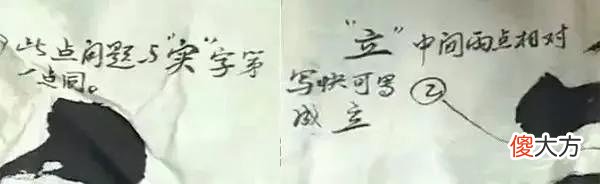 此点问题与“实”字第
一点同。
“立”中间两点相对
写快可写
成立
②
傻大方